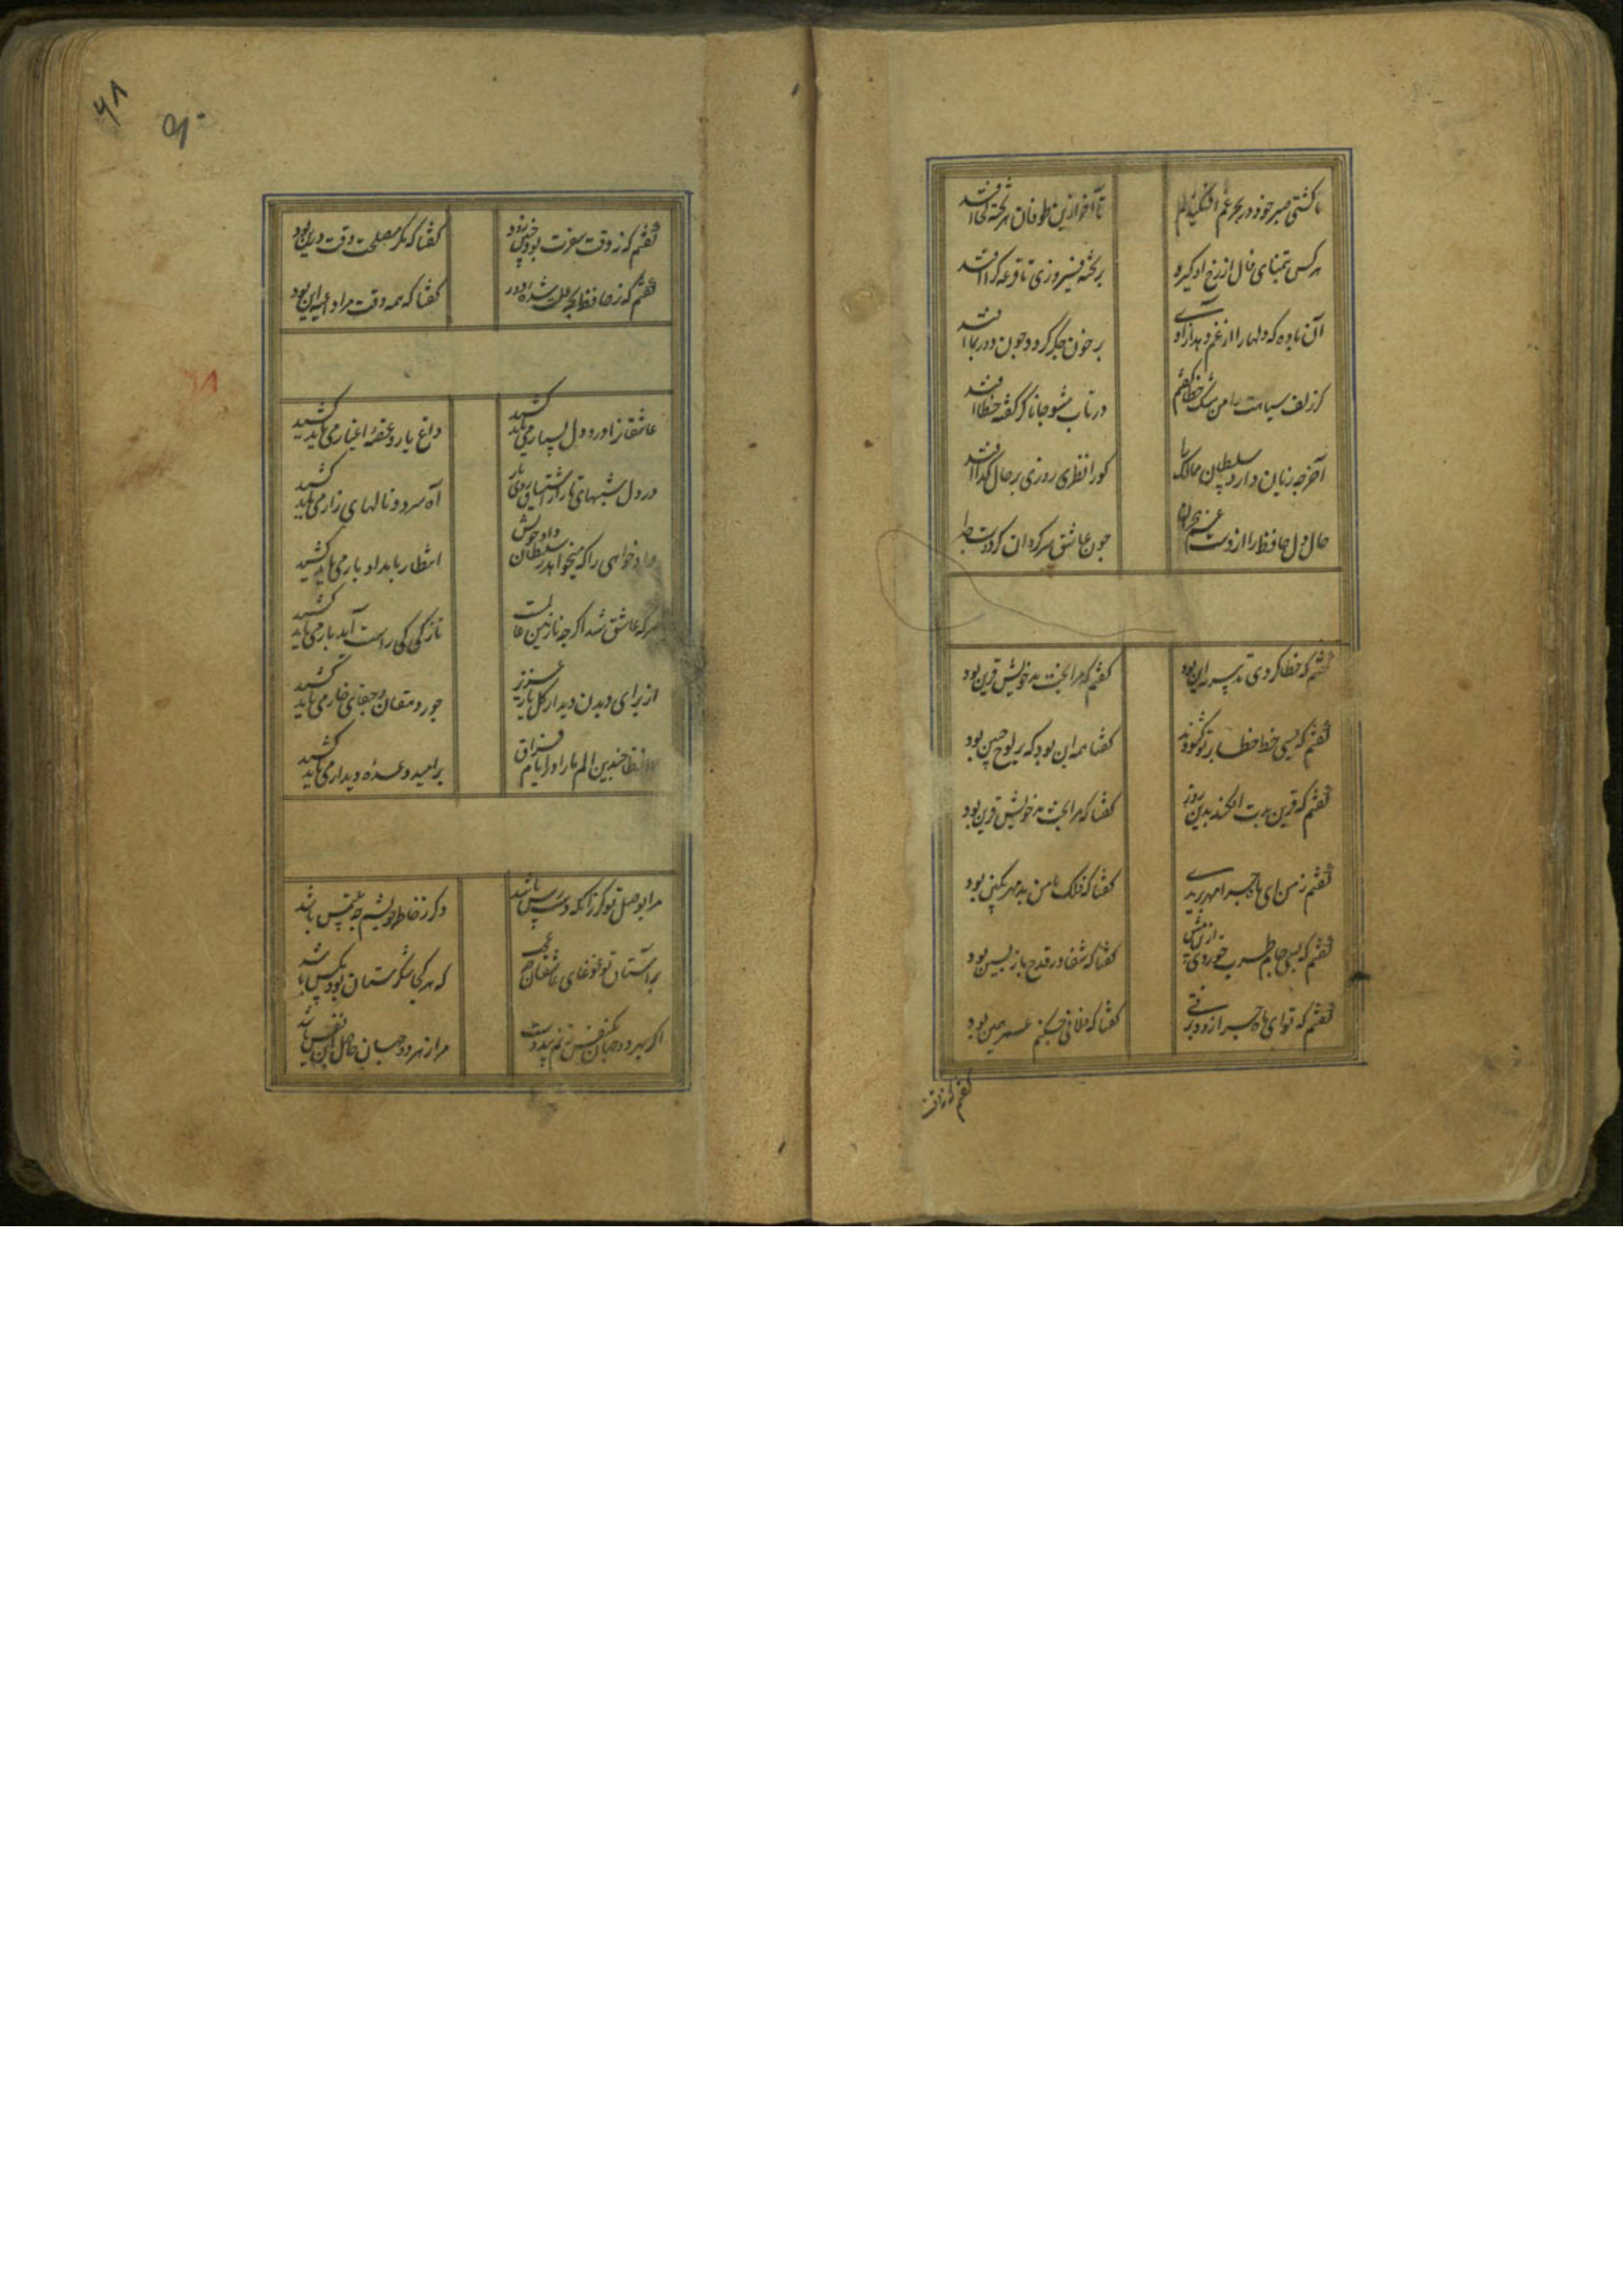 ما کشتی صبر خود در بحر غم افکندیم
تا آخر ازین طوفان هر تخته کجا افتد
هر کس بتمنای فال از رخ او گیرد
بر تخته فیروزی تا قرعه کرا افتد
آن باده که دلها را از غم دهد آزادی
بر خون جگر گردد چون دور بما افتد
گر زلف سیاهت را من مشک خطا گفتم
در تاب مشو جانا گر گفته خطا افتد
آخر چه زیان دارد سلطان ممالک را
کو را نظری روزی بر حال گدا افتد
حال دل حافظ را از دست غم هجران
چون عاشق سرگردان کز دوست جدا
گفتم که خطا کردی تدبیر نه این بود
گفتم که مرا بخت بد خویش قرین بود
گفتم که بسی خط خطا بر تو کشیدند
گفتا همه این بود که بر لوح جبین بود
گفتم که قرین بدت افکند بدین روز
گفتا که مرا بخت بد خویش قرین بود
گفتم ز من ای ماه چرا مهر بریدی
گفتا که فلک با من بد مهر بکین بود
گفتم که بسی جام طرب خوردی ازین پیش
گفتا که شفا در قدح باز پسین بود
گفتم که تو ای ماه چرا زود برفتی
گفتا که فلانی چکنم عمر همین بود
گفتم که نه وقت
۶۸
۹۰
گفتم که نه وقت سفرت بود چنین زود
گفتا که مگر مصلحت وقت درین بود
گفتم که ز حافظ بچه علت شده دور
گفتا که همه وقت مرا داعیه این بود
عاشقانرا درد دل بسیار می باید کشید
داغ یار و غصه اغیار می باید کشید
در دل شبهای تار از اشتیاق روی یار
آه سرد و نالهای زار می باید کشید
داد خواهی را که میخواهد ز سلطان داد خویش
انتظار بامداد بار می باید کشید
هر که عاشق شد اگر چه نازنین عالمست
نازکی کی راست آید بار می باید کشید
از برای دیدن دیدار گل یار عزیز
جور دهقان و جفای خار می باید کشید
حافظا چندین الم ما را در ایام فراق
بر امید وعده دیدار می باید کشید
مرا بوصل تو گر زانکه دسترس باشد
دگر ز طالع خویشم چه ملتمس باشد
بر آستان تو غوغای عاشقان چه عجب
که هر کجا شکرستان بود مگس باشد
اگر بهر دو جهان یکنفس زنم با دوست
مرا ز هر دو جهان حاصل آن نفس باشد